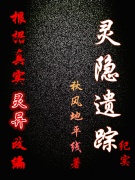 灵隐遗踪
纪实
秋风地平线著
根据真实灵异改编